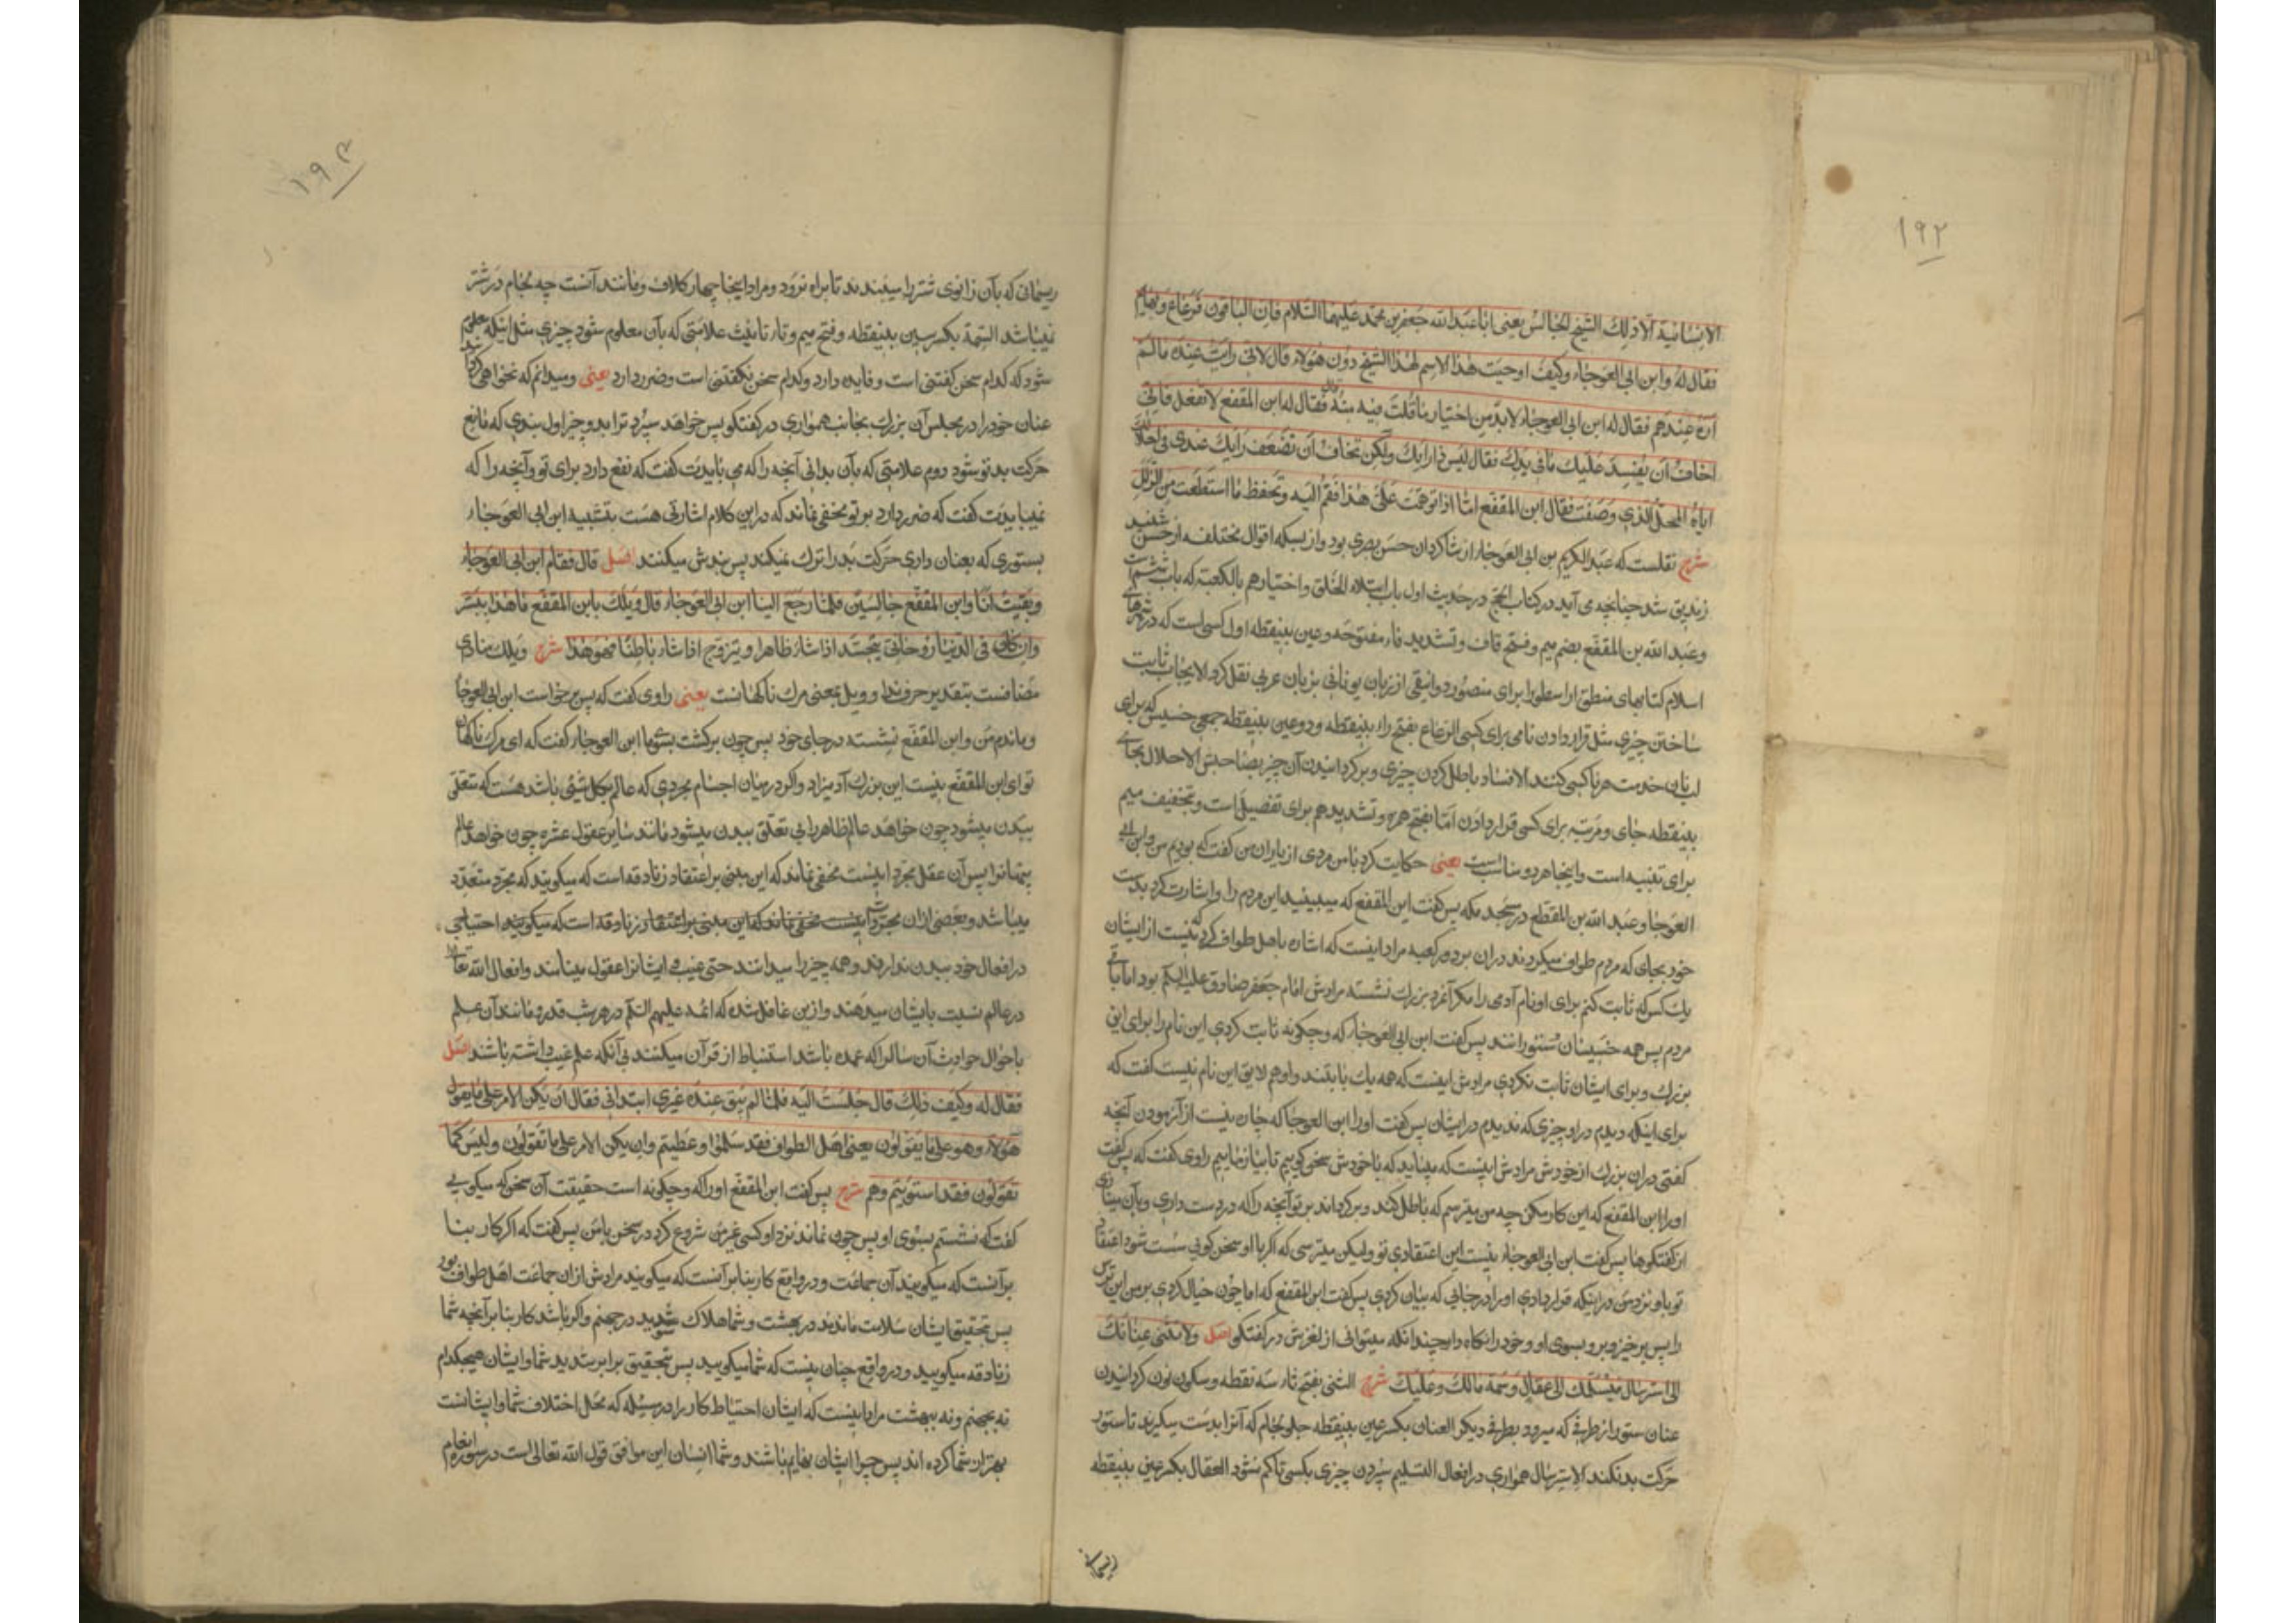 ۱۹۲
الانسانیة الا ذلك الشیخ الجالس یعنی ابا عبدالله جعفر بن محمد علیهما السلام فاما الباقون فرعاع و بهائم
فقال له ابن ابی العوجاء وکیف اوجبت هذا الاسم لهذا الشیخ دون هؤلاء قال لانی رایت عنده ما لم
اره عندهم فقال له ابن ابی العوجاء لابد من اختبار ما قلت فیه منه فقال له ابن المقفع لا تفعل فانی
اخاف ان یفسد علیك ما فی یدك فقال لیس ذا رایك ولکن تخاف ان تضعف رایك عندی فی احلالك
ایاه المحل الذی وصفت فقال ابن المقفع اما اذا توهمت علی هذا فقم الیه وتحفظ ما استطعت من الزلل
شرح نقلست که عبدالکریم بن ابی العوجاء از شاکردان حسن بصری بود و از بسکه اقوال مختلفه از حسن شنید
زندیق شد چنانچه می آید در کتاب الحج در حدیث اول باب ابتلاء الخلق و اختبارهم بالکعبة که باب ششم است
وعبدالله بن المقفع بضم میم وفتح قاف وتشدید فاء مفتوحه وعین بینقطه اول کسی است که در شهرهای
اسلام کتابهای منطق ارسطو را برای منصور دوانیقی از زبان یونانی بزبان عربی نقل کرد الایجاب ثابت
ساختن چیزی مثل قرار دادن نامی برای کسی الرعاع بفتح راء بینقطه و دو عین بینقطه جمعی خسیس که برای
لب نان خدمت هر ناکسی کنند الافساد باطل کردن چیزی و برکردانیدن آن چیز بصاحبش الاحلال بحای
بینقطه جای و مرتبه برای کسی قرار دادن اما بفتح همزه وتشدید هم برای تفصیل است وتخفیف میم
برای تنبیه است واینجا هر دو مناسبست یعنی حکایت کرد بامن مردی از یاران من کفت که بودیم من وابن ابی
العوجا وعبدالله بن المقفع در مسجد مکه پس کفت ابن المقفع که میبینید این مردم را واشارت کرد بدست
خود بجای که مردم طواف میکردند دران بر دور کعبه مراد اینست که اشاره باهل طواف کرد که نیست از ایشان
یك کس که ثابت کنم برای او نام آدمی را مکر آنمرد بزرك نشسته مرادش امام جعفر صادق علیه السلام بود اما باقی
مردم پس همه خسیسان و ستورانند پس کفت ابن ابی العوجاء که و چکونه ثابت کردی این نام را برای این
بزرك و برای ایشان ثابت نکردی مرادش اینست که همه یك بابتند واو هم لایق این نام نیست کفت که
برای اینکه دیدم در او چیزی که ندیدم در ایشان پس کفت او را ابن العوجا که چاره نیست از آزمودن آنچه
کفتی دران بزرك از خودش مرادش اینست که میباید که باخودش سخن کوییم تا بیازماییم راوی کفت که پس کفت
او را ابن المقفع که این کار مکن چه من میترسم که باطل کند و برکرداند بر تو آنچه را که در دست داری و بآن مینازی
از کفتکوها پس کفت ابن ابی العوجاء نیست این اعتقادی تو ولیکن میترسی که اکر با او سخن کویی سست شود اعتقاد
تو باو نزد من در اینکه قرار دادی او را در جائی که بیان کردی پس کفت ابن المقفع که اما چون خیال کردی بر من این ترس
را پس برخیز و برو بسوی او و خود را نکاه دار چندانکه میتوانی از لغزش در کفتکو اصل ولا تثنی عنانك
الی استرسال فیسلمك الی عقال وسمه مالك وعلیك شرح الثنی بفتح ثاء سه نقطه وسکون نون کردانیدن
عنان ستور از طرفی که میرود بطرفی دیکر العنان بکسر عین بینقطه جلو لجام که آنرا بدست میکیرند تا ستور
حرکت بد نکند الاسترسال همواری در افعال التسلیم سپردن چیزی بکسی تا کم شود العقال بکسر عین بینقطه
ریسمانی
۱۹۳
ریسمانی که بآن زانوی شتر را میبندند تا براه نرود ومراد اینجا چهار کلاف ومانند آنست چه لجام در شتر
نمیباشد السمة بکسر سین بینقطه وفتح میم وتاء تانیث علامتی که بآن معلوم شود چیزی مثل اینکه معلوم
شود که کدام سخن کفتنی است و فایده دارد وکدام سخن نکفتنی است وضرر دارد یعنی ومیدانم که نخواهی کردانید
عنان خود را در مجلس آن بزرك بجانب همواری در کفتکو پس خواهد سپرد ترا بدو چیز اول بندی که مانع
حرکت بد تو شود دوم علامتی که بآن بدانی آنچه را که می بایدت کفت که نفع دارد برای تو وآنچه را که
نمیبایدت کفت که ضرر دارد بر تو مخفی نماند که در این کلام اشارتی هست بتشبیه ابن ابی العوجاء
بستوری که بعنان داری حرکت بد را ترك نمیکند پس بندش میکنند اصل قال فقام ابن ابی العوجاء
وبقیت انا وابن المقفع جالسین فلما رجع الینا ابن ابی العوجاء قال ویلك یابن المقفع ما هذا ببشر
وان کان فی الدنیا روحانی یتجسد اذا شاء ظاهرا ویتروح اذا شاء باطنا فهو هذا شرح ویلك منادی
مضافست بتقدیر حرف ندا وویل بمعنی مرك ناکهانست یعنی راوی کفت که پس برخواست ابن ابی العوجا
وماندم من وابن المقفع نشسته در جای خود پس چون برکشت بسوی ما ابن العوجاء کفت که ای مرك ناکهان
تو ای ابن المقفع نیست این بزرك آدمیزاد واکر در میان اجسام مجردی که عالم بکل شیئی باشد هست که متعلق
ببدن میشود چون خواهد عالم ظاهر را بی تعلق ببدن میشود مانند سایر عقول عشره چون خواهد عالم
پنهانرا پس آن عقل مجرد اینست مخفی نماند که این مبنی بر اعتقاد زنادقه است که میکویند که مجرد متعدد
میباشد وبعضی ازان مجردات اینست مخفی نماند که این مبنی بر اعتقاد زنادقه است که میکویند احتیاجی
در افعال خود ببدن ندارند وهمه چیز را میدانند حتی غیب وایشانرا عقول مینامند وافعال الله تعالی
در عالم نسبت بایشان میدهند وازین غافل شده که ائمه علیهم السلام در هر شب قدر ومانند آن علم
باحوال حوادث آن سال را که عمده باشد استنباط از قرآن میکنند بی آنکه علم غیب داشته باشند اصل
فقال له وکیف ذلك قال جلست الیه فلما لم یبق عنده غیری ابتدانی فقال ان یکن الامر علی ما یقول
هؤلاء وهو علی ما یقولون یعنی اهل الطواف فقد سلموا وعطبتم وان یکن الامر علی ما تقولون ولیس کما
تقولون فقد استویتم وهم شرح پس کفت ابن المقفع او را که وچکونه است حقیقت آن سخن که میکویی
کفت که نشستم بسوی او پس چون نماند نزد او کسی غیر من شروع کرد در سخن بامن پس کفت که اکر کار بنا
برآنست که میکویند آن جماعت و در واقع کار بنا برآنست که میکویند مرادش ازان جماعت اهل طواف بود
پس بتحقیق ایشان سلامت ماندند در بهشت وشما هلاك شدید در جهنم واکر باشد کار بنا بر آنچه شما
زنادقه میکویید و در واقع چنان نیست که شما میکویید پس بتحقیق برابر شدید شما وایشان هیچکدام
نه بجهنم ونه ببهشت مراد اینست که ایشان احتیاط کار را در مسئله که محل اختلاف شما وایشانست
بهتر از شما کرده اند پس چرا ایشان بهایم باشند وشما انسان این موافق قول الله تعالی است در سوره انعام